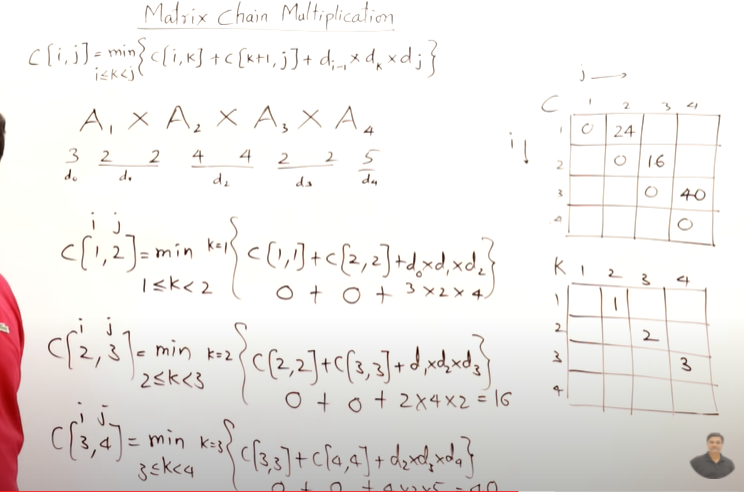 Matrix Chain Multiplication
C[i,j] = min { C[i,k] + C[k+1,j] + di-1 × dk × dj }
i≤k<j
A1 × A2 × A3 × A4
3 2 2 4 4 2 2 5
d0 d1 d2 d3 d4
i j
C[1,2] = min k=1 { C[1,1] + C[2,2] + d0×d1×d2 }
1≤k<2 0 + 0 + 3×2×4
i j
C[2,3] = min k=2 { C[2,2] + C[3,3] + d1×d2×d3 }
2≤k<3
0 + 0 + 2×4×2 = 16
i j
C[3,4] = min k=3 { C[3,3] + C[4,4] + d2×d3×d4 }
3≤k<4
0 + 0 + 4×2×5 = 40
j →
C 1 2 3 4
i ↓
1 0 24
2 0 16
3 0 40
4 0
K 1 2 3 4
1 1
2 2
3 3
4